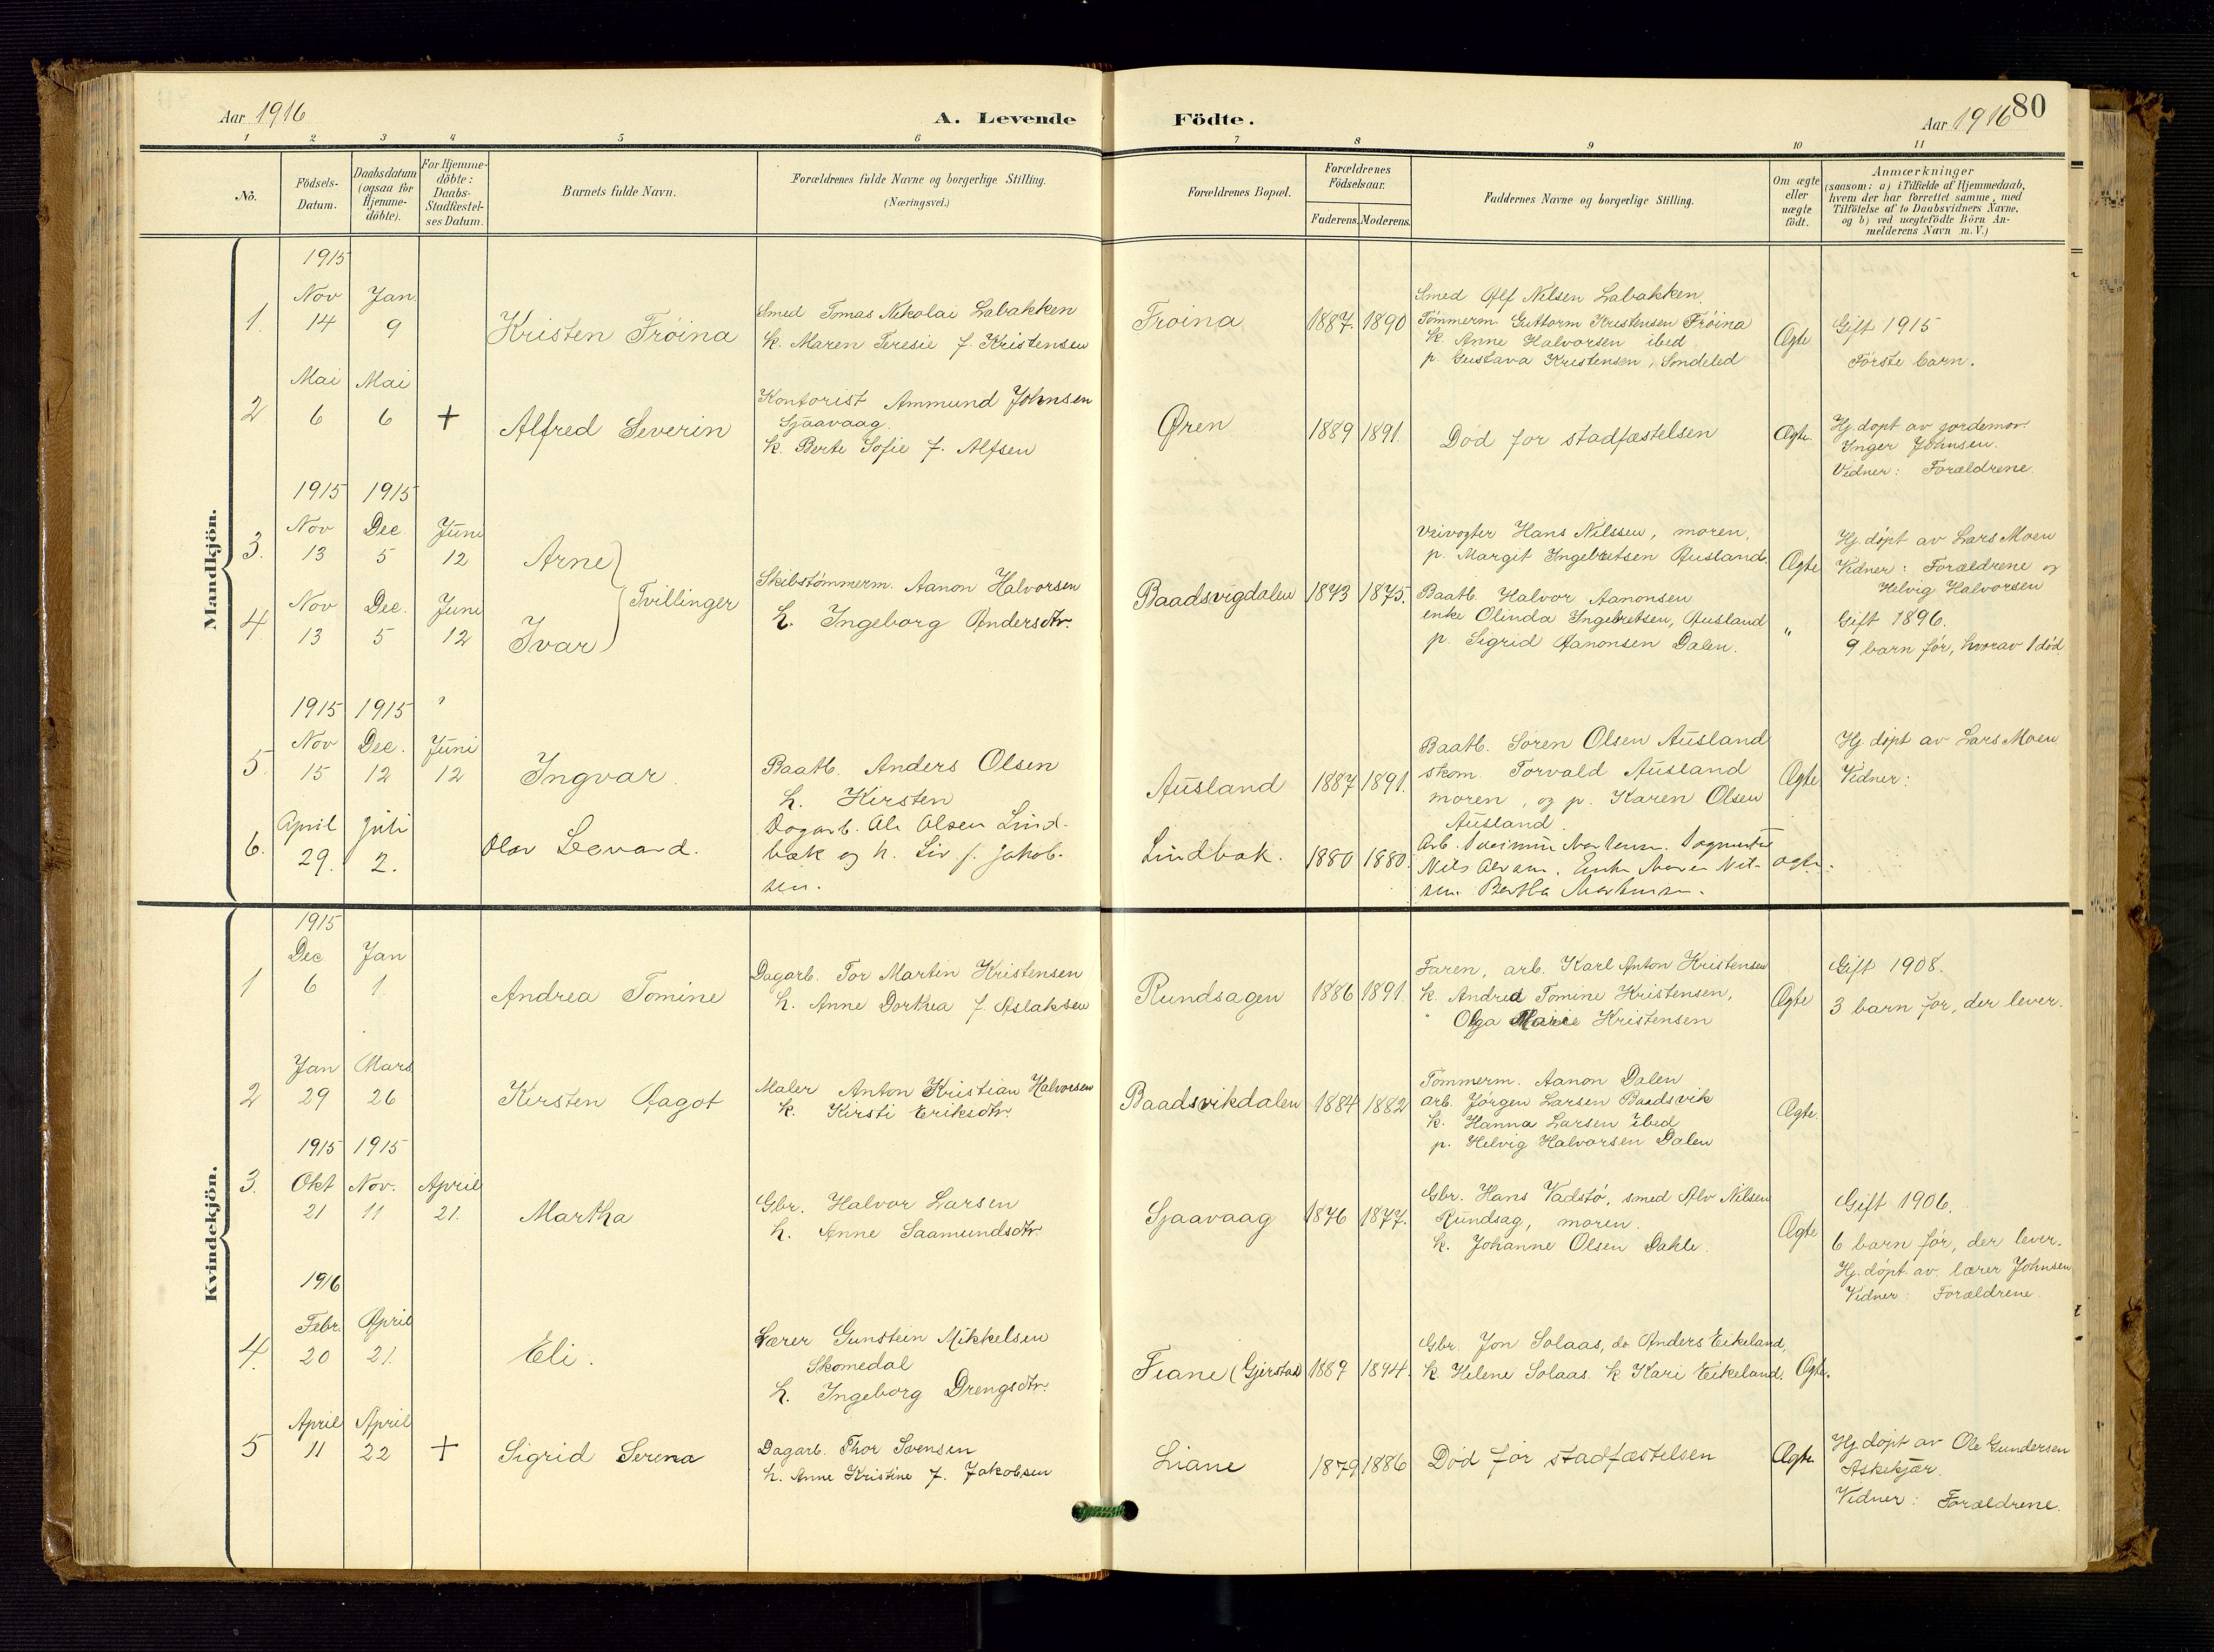 Aar 1916
A. Levende
Födte.
Aar 1916
80
1 2 3 4 5 6 7 8 9 10 11
No.
Födsels-
Datum.
Daabsdatum
(ogsaa for
Hjemme-
döbte).
For Hjemme-
döbte:
Daabs-
Stadfæstel-
ses Datum.
Barnets fulde Navn.
Forældrenes fulde Navne og borgerlige Stilling.
(Næringsvei.)
Forældrenes Bopæl.
Forældrenes
Födselsaar.
Faderens. Moderens.
Faddernes Navne og borgerlige Stilling.
Om ægte
eller
uægte
födt.
Anmærkninger
(saasom: a) i Tilfælde af Hjemmedaab,
hvem der har forrettet samme, med
Tilföielse af to Daabsvidners Navne,
og b) ved uægtefödte Börn An-
melderens Navn m. V.)
Mandkjön.
1915
1. Nov 14
Jan. 9
Kristen Frøina
Smed Tomas Nikolai Labakken
k. Maren Teresie f. Kristensen
Froina
1887. 1890
Smed Alf Nilsen Labakken.
Tømmerm. Guttorm Kristensen Frøina
k. Anne Halvorsen ibed.
p. Gustava Kristensen, Søndeled
Ægte
Gift 1915
Første barn.
2 Mai 6
Mai 6
+
Alfred Severin
Kontorist Ammund Johnsen
Sjaavaag.
k. Berte Sofie f. Alfsen
Øren
1889 1891.
Død før stadfæstelsen
Ægte.
Hj. døpt av jordemor
Inger Johnsen.
Vidner: Forældrene.
1915 1915
3. Nov 13
Dec 5
Juni 12
Arne
4 Nov 13
Dec. 5
Juni 12
Ivar
Tvillinger
Skibstømmerm. Aanon Halvorsen
h. Ingeborg Andersdtr.
Baadsvigdalen
1873 1875.
Veivogter Hans Nilssen, moren,
p. Margit Ingebretsen Ausland.
Baatb. Halvor Aanonsen
enke Olinda Ingebretsen, Ausland
p. Sigrid Aanonsen Dalen.
Ægte
"
Hj. døpt av Lars Moen
Vidner: Forældrene og
Helvig Halvorsen
Gift 1896.
9 barn før, hvorav 1 død.
1915 1915
5 Nov 15
Dec. 12
Juni 12
Ingvar.
Baatb. Anders Olsen
h. Kirsten
Ausland
1887 1891.
Baatb. Søren Olsen Ausland
skom. Torvald Ausland
moren, og p. Karen Olsen
Ausland.
Ægte
Hj. døpt av Lars Moen
Vidner:
6. April 29.
Juli 2.
Olav Leevard.
Dagarb. Ole Olsen Lind-
bæk og h. Liv f. Jakob-
sen.
Lindbæk.
1880 1880.
Nils
Bertha
ægte.
Kvindekjön.
1915
1 Dec 6
Jan 1
Andrea Tomine
Dagarb. Tor Martin Kristensen
h. Anne Dorthea f. Aslaksen
Rundsagen
1886 1891.
Faren, arb. Karl Anton Kristensen
k. Andrea Tomine Kristensen,
" Olga Marie Kristensen
Ægte
Gift 1908.
3 barn før, der lever.
2 Jan 29
Mars 26
Kirsten Aagot
Maler Anton Kristian Halvorsen
k. Kirsti Eriksdtr.
Baadsvikdalen
1884 1882
Tømmerm. Aanon Dalen
arb. Jørgen Larsen Baadsvik
k. Hanna Larsen ibed
p. Helvig Halvorsen Dalen
Ægte.
1915 1915
3. Okt 21
Nov. 11
April 21.
Martha
Gbr. Halvor Larsen
h. Anne Saamundsdtr.
Sjaavaag
1876 1877.
Gbr. Hans Vadstø, smed Alv Nilsen
Rundsag, moren.
k. Johanne Olsen Dahle.
Ægte
Gift 1906.
6 barn før, der lever.
Hj. døpt av lærer Johnsen
Vidner: Forældrene.
1916
4. Febr. 20
April 21.
Eli.
Lærer Gunstein Mikkelsen
Skomedal
h. Ingeborg Drengsdtr.
Fiane (Gjerstad)
1889 1894.
Gbr. Jon Solaas, do Anders Eikeland,
k. Helene Solaas k. Kari Eikeland.
Ægte.
5 April 11
April 22
+
Sigrid Serena
Dagarb. Thor Svensen
h. Anne Kristine f. Jakobsen
Liane
1879 1886
Død før stadfæstelsen
Ægte
Hj. døpt av Ole Gundersen
Askekjær.
Vidner: Forældrene.